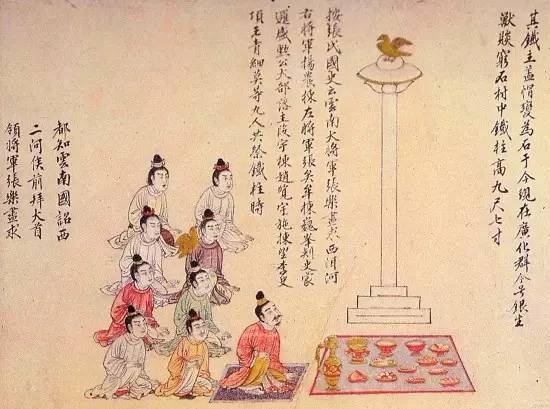 其鐵主蓋帽變為石于今現在廣化郡今号銀生
獸賧窮石村中鐵柱高九尺七寸
按張氏國史云雲南大將軍張樂盡求西洱河
右將軍揚農棟左將軍張矣牟棟巍峯刾史蒙
邏盛勲公大部落主段宇棟趙覽宇施棟望李史
項王青細莫等九人共祭鐵柱時
都知雲南國詔西
二河侯前拜大首
領將軍張樂盡求